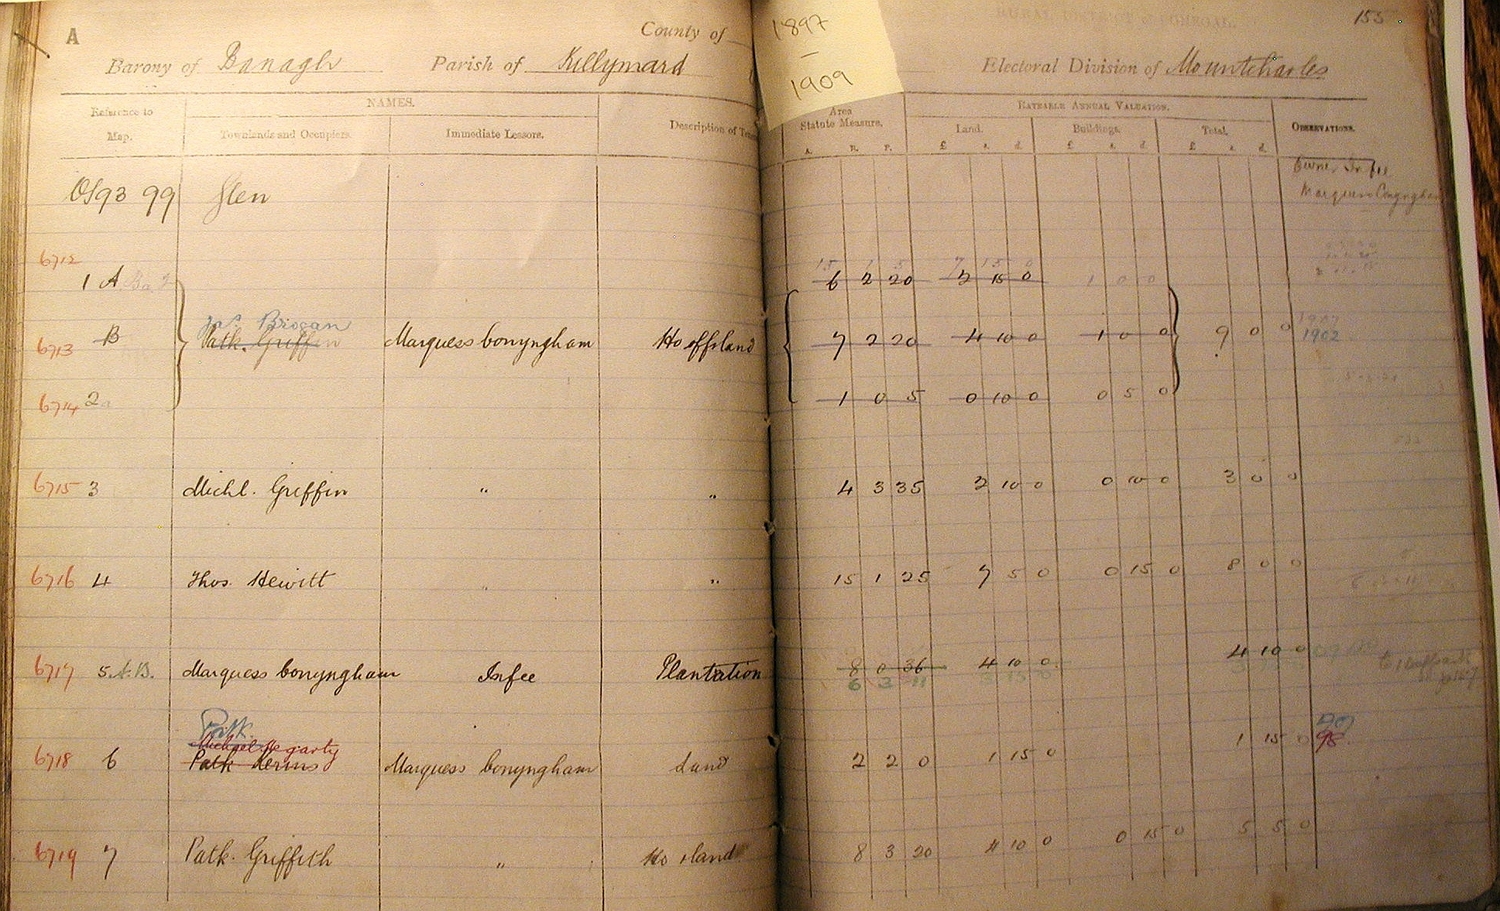 A
County of
1897
—
1909
155
Barony of Banagh Parish of Killymard Electoral Division of Mountcharles
Reference to Map. NAMES. Description of Area Statute Measure. RATEABLE ANNUAL VALUATION. OBSERVATIONS.
Townlands and Occupiers. Immediate Lessors. Land. Buildings. Total.
A. R. P. £ s. d. £ s. d. £ s. d.
OS 93 99 Glen
Owner In fee
Marquess Conyngham
15 1 5 7 15 0
6712 1 A 6 2 20 2 15 0 1 0 0
Jas. Brogan 1907
6713 B Patk. Griffin Marquess Conyngham Ho off land 7 2 20 4 10 0 1 0 0 9 0 0 1902
6714 2a 1 0 5 0 10 0 0 5 0
6715 3 Michl. Griffin " " 4 3 35 2 10 0 0 10 0 3 0 0
6716 4 Thos. Hewitt " " 15 1 25 7 5 0 0 15 0 8 0 0
6717 5 A.B. Marquess Conyngham In fee Plantation 8 0 36 4 10 0 4 10 0
6 3 11 3 15 0 3 15 0
Patk.
Michael Hegarty
6718 6 Patk Marquess Conyngham Land 2 2 0 1 15 0 1 15 0 98.
6719 7 Patk. Griffith " Ho & land 8 3 20 4 10 0 0 15 0 5 5 0